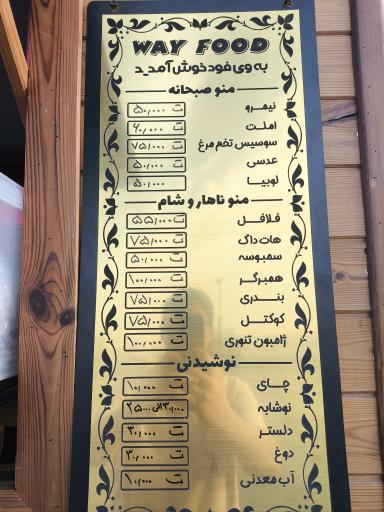 WAY FOOD
به وی فود خوش آمدید
منو صبحانه
نیمرو ۵۰/۰۰۰ ت
املت ۶۰/۰۰۰ ت
سوسیس تخم مرغ ۷۵/۰۰۰ ت
عدسی ۵۰/۰۰۰ ت
لوبیا ۵۰/۰۰۰
منو ناهار و شام
فلافل ۵۵/۰۰۰ ت
هات داگ ۷۵/۰۰۰ ت
سمبوسه ۵۰/۰۰۰ ت
همبرگر ۱۰۰/۰۰۰ ت
بندری ۷۵/۰۰۰ ت
کوکتل ۷۵/۰۰۰ ت
ژامبون تنوری ۱۰۰/۰۰۰ ت
نوشیدنی
چای ۱۰/۰۰۰ ت
نوشابه
دلستر ۳۰/۰۰۰ ت
دوغ ۳۰/۰۰۰ ت
آب معدنی ۱۰/۰۰۰ ت